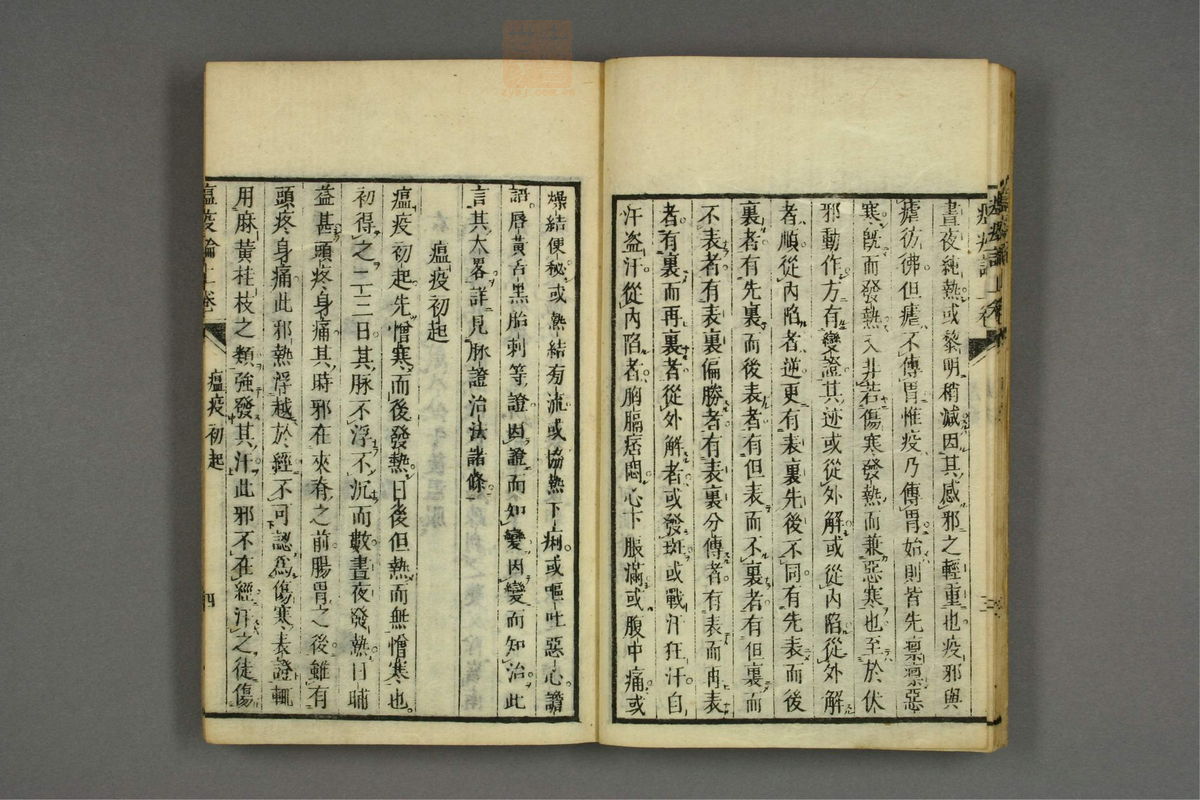 晝夜純熱或黎明稍減因其感邪之輕重也疫邪與
瘧彷彿但瘧不傳胃惟疫乃傳胃始則皆先凛凛惡
寒旣而發熱又非若傷寒發熱而兼惡寒也至於伏
邪動作方有變證其迹或從外解或從內陷從外解
者順從內陷者逆更有表裏先後不同有先表而後
裏者有先裏而後表者有但表而不裏者有但裏而
不表者有表裏偏勝者有表裏分傳者有表而再表
者有裏而再裏者從外解者或發斑或戰汗狂汗自
汗盗汗從內陷者胸膈痞悶心下脹滿或腹中痛或
燥結便秘或熱結旁流或協熱下痢或嘔吐惡心譫
語唇黄舌黑胎刺等證因證而知變因變而知治此
言其大畧詳見脉證治法諸條
瘟疫初起
瘟疫初起先憎寒而後發熱日後但熱而無憎寒也
初得之二三日其脉不浮不沉而數晝夜發熱日晡
益甚頭疼身痛其時邪在夾脊之前腸胃之後雖有
頭疼身痛此邪熱浮越於經不可認爲傷寒表證輒
用麻黃桂枝之類強發其汗此邪不在經汗之徒傷
瘟疫論上卷
瘟疫初起
四